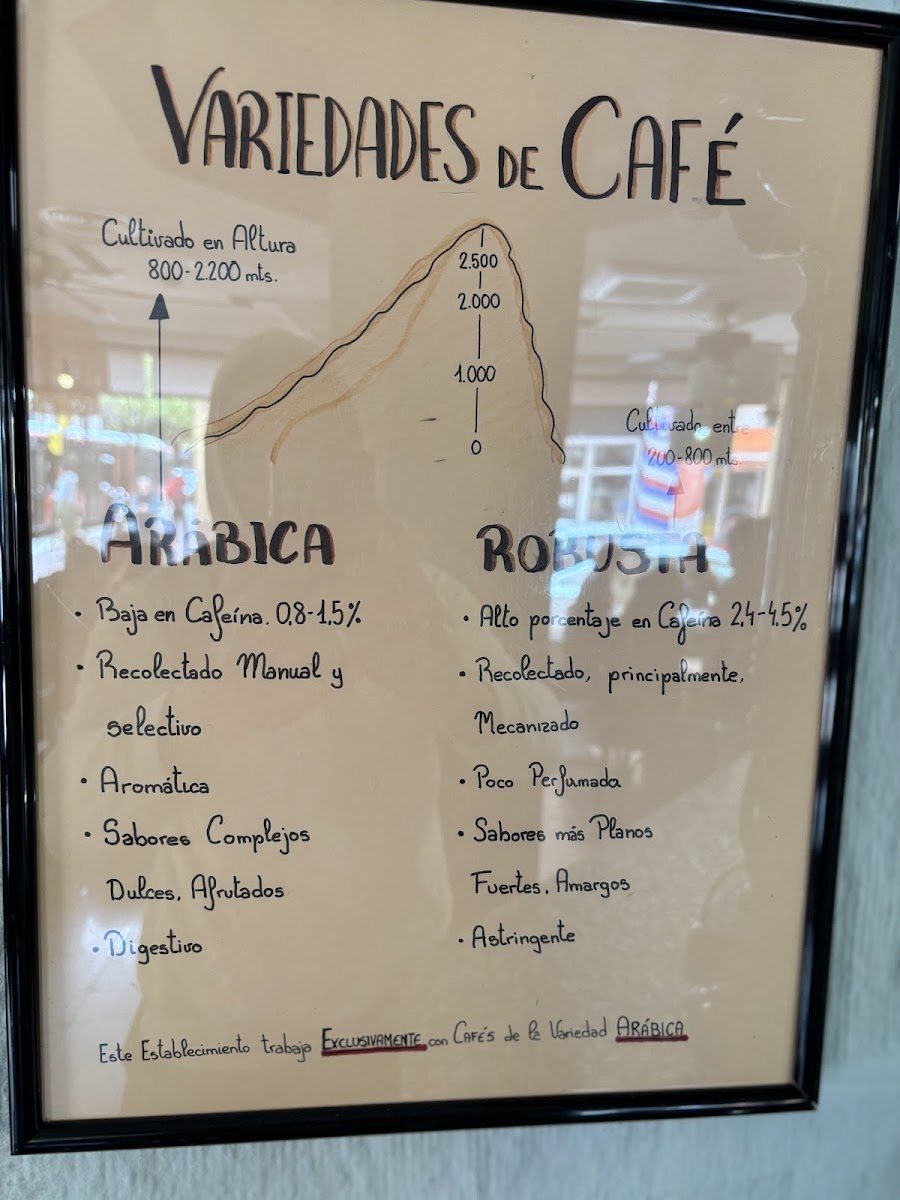 VARIEDADES DE CAFÉ
Cultivado en Altura
800-2.200 mts.
2.500
2.000
1.000
0
Cultivado entre
200-800 mts.
ARÁBICA
• Baja en Cafeína. 0,8-1,5%
• Recolectado Manual y
selectivo
• Aromática
• Sabores Complejos
Dulces, Afrutados
• Digestivo
ROBUSTA
• Alto porcentaje en Cafeína 2,4-4.5%
• Recolectado, principalmente,
Mecanizado
• Poco Perfumada
• Sabores más Planos
Fuertes, Amargos
• Astringente
Este Establecimiento trabaja EXCLUSIVAMENTE con CAFÉS de la Variedad ARÁBICA